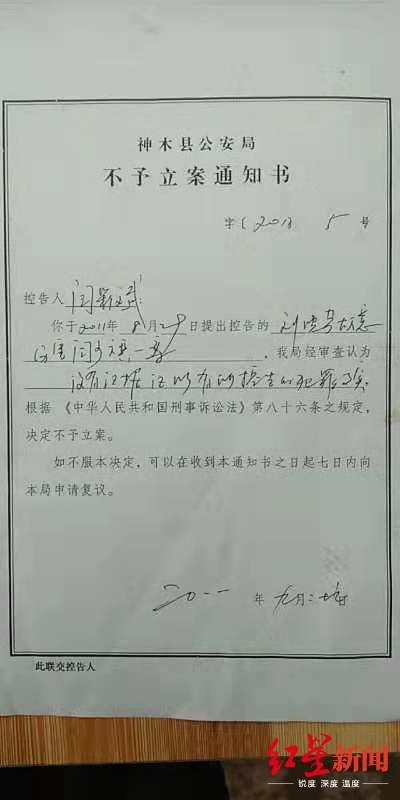 神木县公安局
不予立案通知书
字[2011] 5 号
控告人
你于2011年8月29日提出控告的
一案，我局经审查认为
没有证据证明有 控告的犯罪事实
根据《中华人民共和国刑事诉讼法》第八十六条之规定，
决定不予立案。
如不服本决定，可以在收到本通知书之日起七日内向
本局申请复议。
二〇一一 年 九月二
此联交控告人
红星新闻
锐度 深度 温度